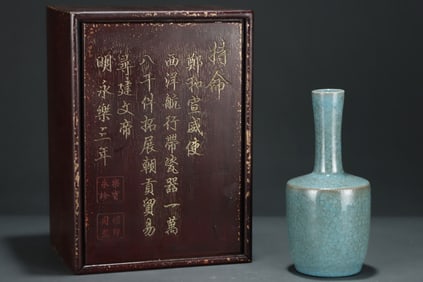 持命
鄭和宣威使
西洋航行帶瓷器一萬
八千件拓展朝貢貿易
尋建文帝
明永樂三年